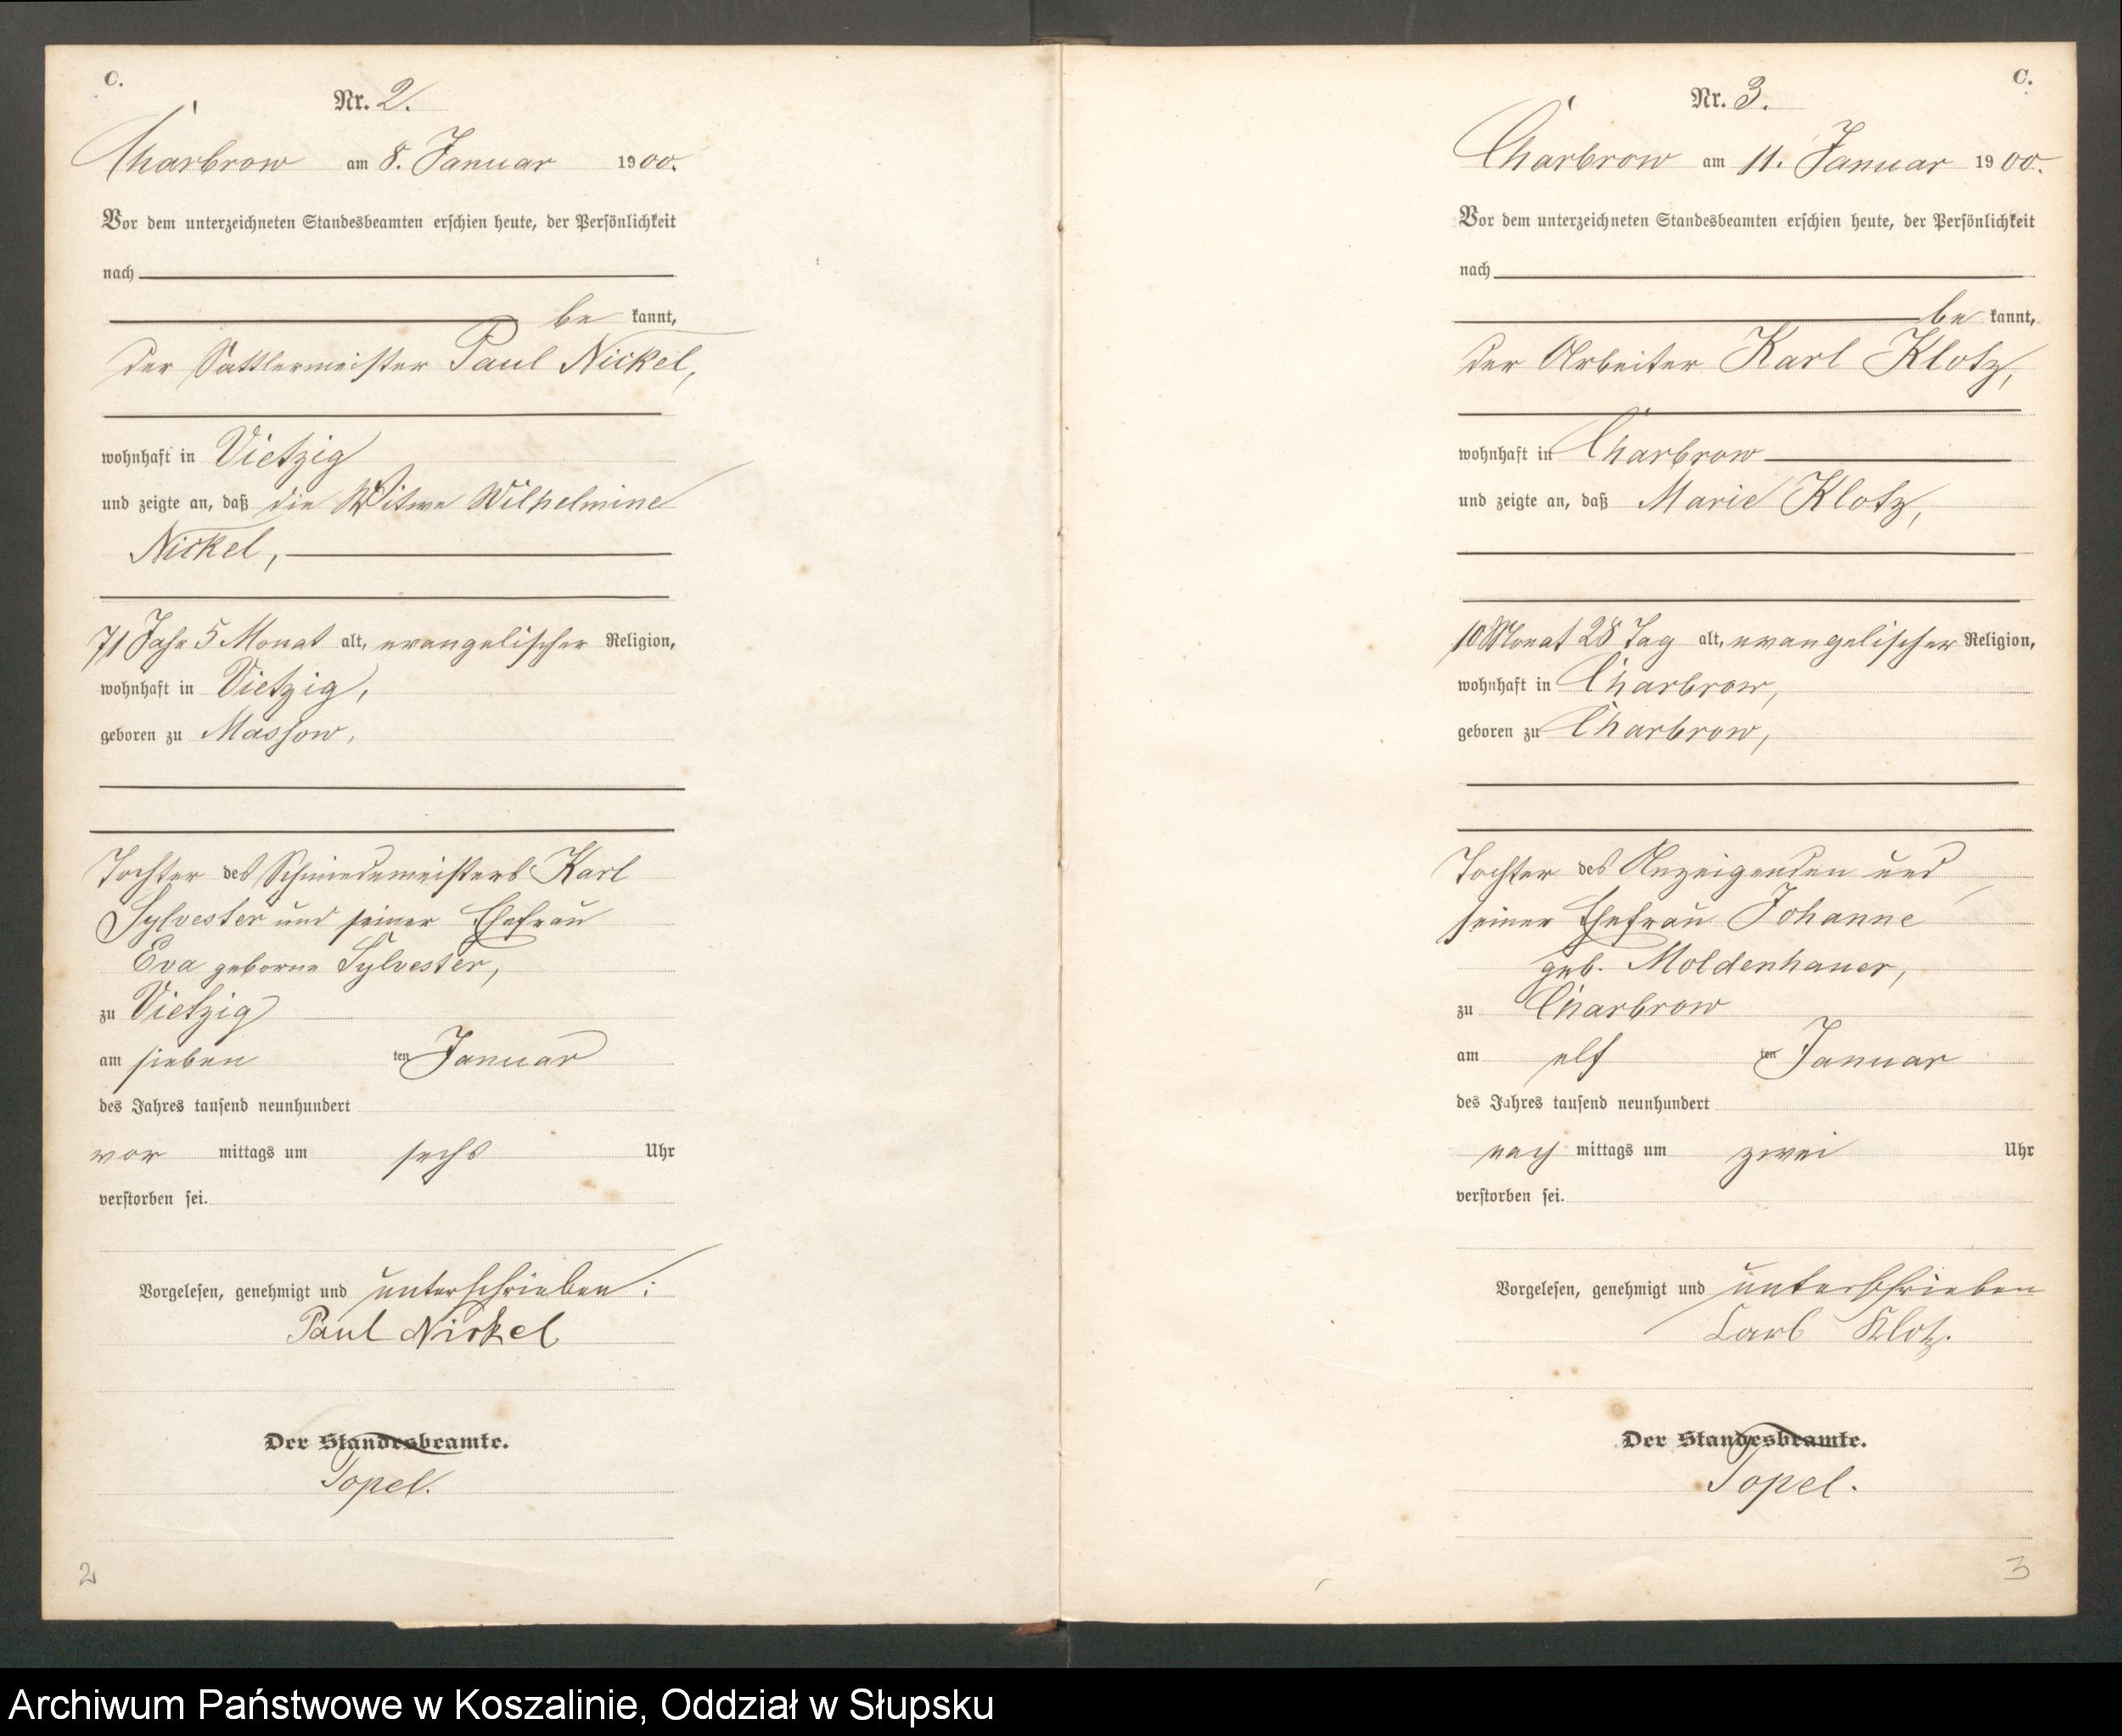 C.
Nr. 2.
Charbrow am 8. Januar 1900.
Vor dem unterzeichneten Standesbeamten erschien heute, der Persönlichkeit
nach
be kannt,
der Sattlermeister Paul Nickel,
wohnhaft in Vietzig
und zeigte an, daß die Witwe Wilhelmine
Nickel,
71 Jahr 5 Monat alt, evangelischer Religion,
wohnhaft in Vietzig,
geboren zu Massow,
Tochter des Schmiedemeisters Karl
Sylvester und seiner Ehefrau
Eva geborne Sylvester,
zu Vietzig
am sieben ten Januar
des Jahres tausend neunhundert
vor mittags um sechs Uhr
verstorben sei.
Vorgelesen, genehmigt und unterschrieben:
Paul Nickel
Der Standesbeamte.
Topel.
2
C.
Nr. 3.
Charbrow am 11. Januar 1900.
Vor dem unterzeichneten Standesbeamten erschien heute, der Persönlichkeit
nach
be kannt,
der Arbeiter Karl Klotz,
wohnhaft in Charbrow
und zeigte an, daß Marie Klotz,
10 Monat 28 Tag alt, evangelischer Religion,
wohnhaft in Charbrow,
geboren zu Charbrow,
Tochter des Anzeigenden und
seiner Ehefrau Johanne
geb. Moldenhauer,
zu Charbrow
am elf ten Januar
des Jahres tausend neunhundert
nach mittags um zwei Uhr
verstorben sei.
Vorgelesen, genehmigt und unterschrieben
Carl Klotz.
Der Standesbeamte.
Topel.
3
Archiwum Państwowe w Koszalinie, Oddział w Słupsku